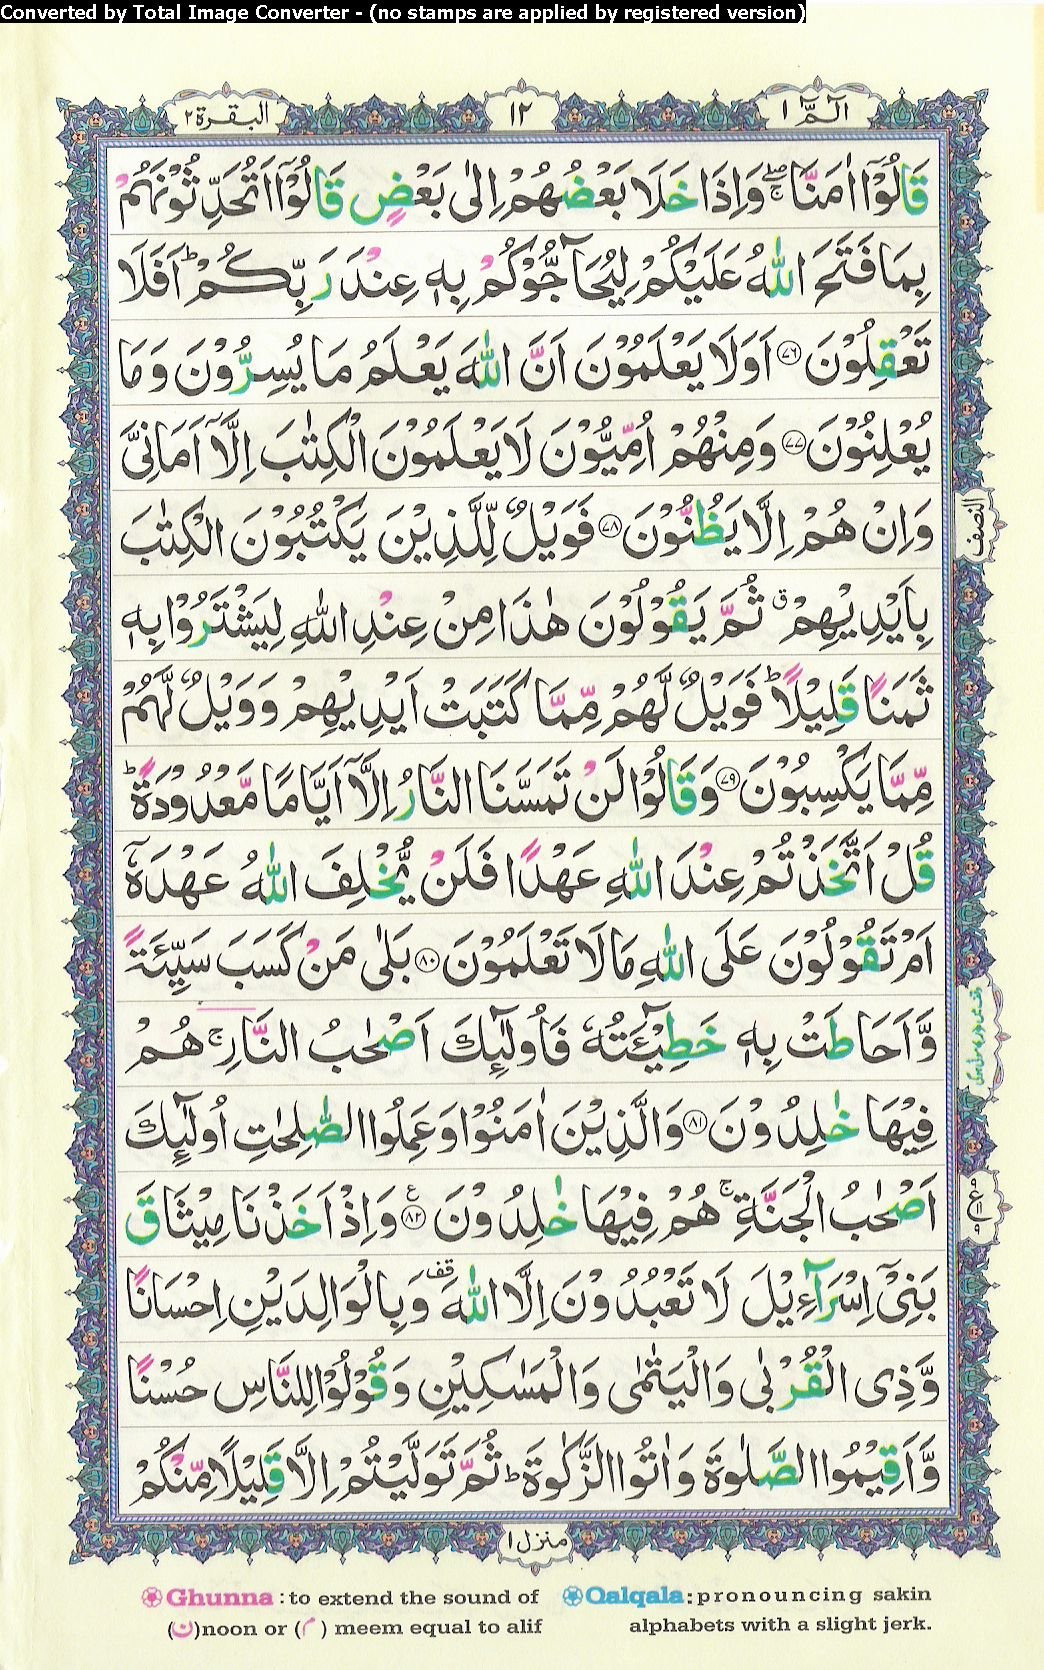 Converted by Total Image Converter - (no stamps are applied by registered version)
الٓمّٓ ١
١٢
البقرة ٢
قَالُوْۤا اٰمَنَّا ۖۚ وَاِذَا خَلَا بَعْضُهُمْ اِلٰى بَعْضٍ قَالُوْۤا اَتُحَدِّثُوْنَهُمْ
بِمَا فَتَحَ اللّٰهُ عَلَيْكُمْ لِيُحَآجُّوْكُمْ بِهٖ عِنْدَ رَبِّكُمْ ؕ اَفَلَا
تَعْقِلُوْنَ ۝۷۶ اَوَلَا يَعْلَمُوْنَ اَنَّ اللّٰهَ يَعْلَمُ مَا يُسِرُّوْنَ وَمَا
يُعْلِنُوْنَ ۝۷۷ وَمِنْهُمْ اُمِّيُّوْنَ لَا يَعْلَمُوْنَ الْكِتٰبَ اِلَّاۤ اَمَانِيَّ
وَاِنْ هُمْ اِلَّا يَظُنُّوْنَ ۝۷۸ فَوَيْلٌ لِّلَّذِيْنَ يَكْتُبُوْنَ الْكِتٰبَ
النصف
بِاَيْدِيْهِمْ ۗ ثُمَّ يَقُوْلُوْنَ هٰذَا مِنْ عِنْدِ اللّٰهِ لِيَشْتَرُوْا بِهٖ
ثَمَنًا قَلِيْلًا ؕ فَوَيْلٌ لَّهُمْ مِّمَّا كَتَبَتْ اَيْدِيْهِمْ وَوَيْلٌ لَّهُمْ
مِّمَّا يَكْسِبُوْنَ ۝۷۹ وَقَالُوْا لَنْ تَمَسَّنَا النَّارُ اِلَّاۤ اَيَّامًا مَّعْدُوْدَةً ؕ
قُلْ اَتَّخَذْتُمْ عِنْدَ اللّٰهِ عَهْدًا فَلَنْ يُّخْلِفَ اللّٰهُ عَهْدَهٗۤ
اَمْ تَقُوْلُوْنَ عَلَى اللّٰهِ مَا لَا تَعْلَمُوْنَ ۝۸۰ بَلٰى مَنْ كَسَبَ سَيِّئَةً
وَّاَحَاطَتْ بِهٖ خَطِيْٓئَتُهٗ فَاُولٰٓئِكَ اَصْحٰبُ النَّارِ ۚ هُمْ
فِيْهَا خٰلِدُوْنَ ۝۸۱ وَالَّذِيْنَ اٰمَنُوْا وَعَمِلُوا الصّٰلِحٰتِ اُولٰٓئِكَ
اَصْحٰبُ الْجَنَّةِ ۚ هُمْ فِيْهَا خٰلِدُوْنَ ۝۸۲ ع وَاِذْ اَخَذْنَا مِيْثَاقَ
ع
بَنِيْۤ اِسْرَآءِيْلَ لَا تَعْبُدُوْنَ اِلَّا اللّٰهَ قف وَبِالْوَالِدَيْنِ اِحْسَانًا
وَّذِى الْقُرْبٰى وَالْيَتٰمٰى وَالْمَسٰكِيْنِ وَقُوْلُوْا لِلنَّاسِ حُسْنًا
وَّاَقِيْمُوا الصَّلٰوةَ وَاٰتُوا الزَّكٰوةَ ؕ ثُمَّ تَوَلَّيْتُمْ اِلَّا قَلِيْلًا مِّنْكُمْ
منزل ١
Ghunna : to extend the sound of
(ن)noon or (م) meem equal to alif
Qalqala: pronouncing sakin
alphabets with a slight jerk.